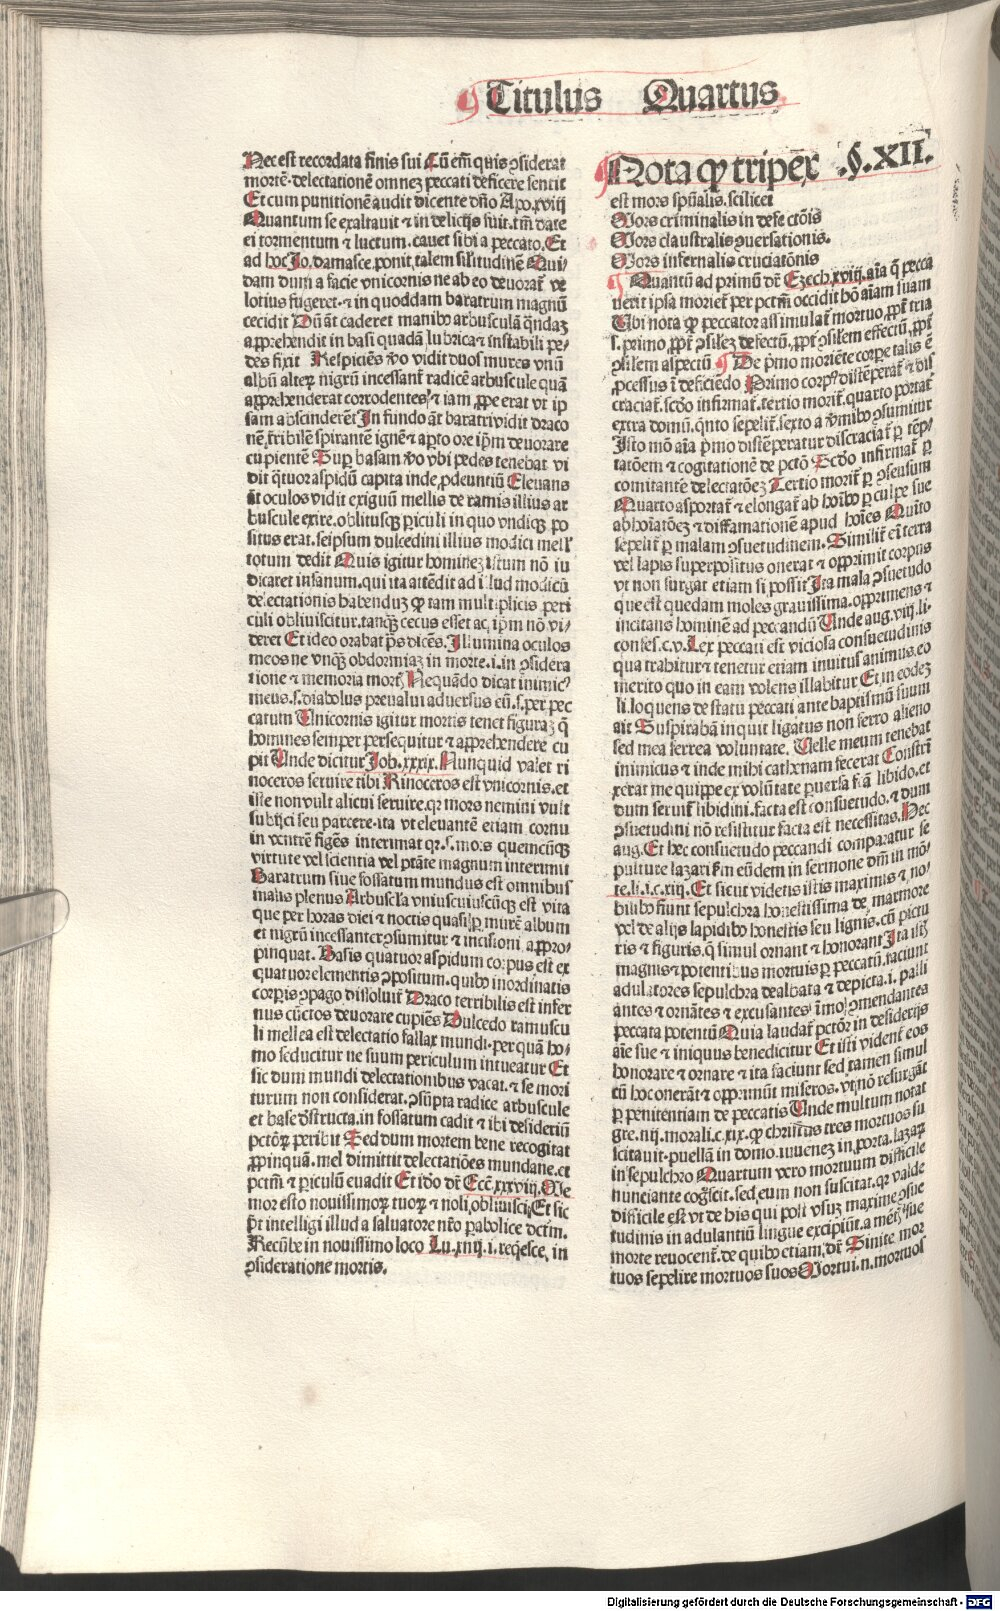 Titulus Quartus
Nec est recordata finis sui Cū em̄ quis ꝯsiderat
mortē. delectationē omneꝫ peccati deficere sentit
Et cum punitionē audit dicente dn̄o Apo. xviij
Quantum se exaltauit ⁊ in delicijs fuit. tm̄ date
ei tormentum ⁊ luctum. cauet sibi a peccato. Et
ad hoc Jo. damasce. ponit talem silitudinē Qui
dam dum a facie vnicornis ne ab eo deuorat᷑ ve
lotius fugeret. ⁊ in quoddam baratrum magnū
cecidit Dū āt caderet manibꝰ arbusculā qn̄daꝫ
apprehendit ⁊ in basi quadā lubrica ⁊ instabili pe/
des fixit Respiciēs ꝟo vidit duos mures vnū
albū alteꝝ nigrū incessant᷑ radicē arbuscule quā
apprehenderat corrodentes. ⁊ iam ꝓpe erat vt ip
sam abscinderēt In fundo āt baratri vidit draco
nē t̄ribilē spirantē ignē ⁊ apto ore ip̄m deuorare
cupientē Suꝑ basam ꝟo vbi pedes tenebat vi
dit q̄tuor aspidū capita inde ꝓdeuntiū Eleuans
āt oculos vidit exiguū mellis de ramis illius ar
buscule exire. oblitusqꝫ ꝑiculi in quo vndiqꝫ po
situs erat. seipsum dulcedini illius modici mell'
totum dedit Quis igitur homineꝫ istum nō iu
dicaret insanum. qui ita attēdit ad illud modicū
delectationis habenduꝫ ꝙ tam multiplicis peri
culi obliuiscitur. tanqꝫ cecus esset ac ip̄m nō vi/
deret Et ideo orabat ꝓ̄s dicēs. Illumina oculos
meos ne vnqꝫ obdormiaꝫ in morte. i. in ꝯsidera
tione ⁊ memoria mort᷑ Nequādo dicat inimicꝰ
meus. s. diabolus preualui aduersus eū. s. per pec
catum Unicornis igitur mortis tenet figuraꝫ q̄
homines semper persequitur ⁊ apprehendere cu
pit Unde dicitur Job. xxxix. Nunquid valet ri
noceros seruire tibi Rinoceros est vnicornis. et
iste non vult alicui seruire. qꝛ mors nemini vult
subijci seu parcere. ita vt eleuantē etiam cornu
in ventrē figēs interimat qꝛ. s. mors quemcūqꝫ
virtute vel scientia vel ptāte magnum interimit
Baratrum siue fossatum mundus est omnibus
malis plenus Arbuscła vniuscuiuscūqꝫ est vita
que per horas diei ⁊ noctis quasi ꝑ murē album
et nigrū incessanter ꝯsumitur ⁊ incisioni appro/
pinquat. Basis quatuor aspidum corpus est ex
quatuor elementis ꝯpositum. quibꝰ inordinatis
corꝑis ꝯpago dissoluit᷑ Draco terribilis est infer
nus cūctos deuorare cupiēs Dulcedo ramuscu
li mellea est delectatio fallax mundi. per quā ho/
mo seducitur ne suum periculum intueatur Et
sic dum mundi delectationibus vacat. ⁊ se mori
turum non considerat. ꝯsūpta radice arbuscule
et base dr̄structa. in fossatum cadit ⁊ ibi desideriū
pctōꝝ peribit Sed dum mortem bene recogitat
ꝓpinquā. mel dimittit delectatiōes mundane. et
pctm̄ ⁊ periculū euadit Et ido dr̄ Ecc̄. xxxviij. Me
mor esto nouissimoꝝ tuoꝝ ⁊ noli obliuisci Et sic
pt̄ intelligi illud a saluatore nr̄o ꝑabolice dctm̄.
Recūbe in nouissimo loco Lu. xiiij. i. reqēsce in
ꝯsideratione mortis.
Nota ꝙ tripex .§. XII.
est mors spūalis. scilicet
Mors criminalis in defectōis
Mors claustralis ꝯuersationis.
Mors infernalis cruciatōnis
Quantū ad primū dr̄ Ezech. xviij. aīa q̄ pecca
uerit ipsa moriet᷑ per pctm̄ occidit hō aīam suam
Ubi nota ꝙ peccator assimulat᷑ mortuo ꝓpt᷑ tria
s. primo, ꝓpt᷑ ꝯsileꝫ defectū, ꝓpt᷑ ꝯsilem effectū, ꝓpt᷑
ꝯsilem aspectū De p̄mo moriēte corpe talis ē
ꝓcessus ī deficiēdo Primo corpꝰ distēperat᷑ ⁊ dis
craciat᷑. scdo infirmat᷑. tertio morit᷑. quarto portat᷑
extra domū. q̄nto sepelit᷑. sexto a ꝟmibꝰ ꝯsumitur
Isto mō aīa p̄mo distēperatur discraciat᷑ ꝑ tēp/
tatōem ⁊ cogitationē de pctō Scdo infirmat᷑ ꝑ
comitantē delectatōeꝫ Tertio morit᷑ ꝑ ꝯsensum
Quarto asportat᷑ ⁊ elongat᷑ ab hoībꝰ ꝑ culpe sue
abhoīatōeꝫ ⁊ diffamationē apud hoīes Quīto
sepelit᷑ ꝑ malam ꝯsuetudinem. Similit᷑ eī terra
vel lapis superpositus onerat ⁊ opprimit corpus
vt non surgat etiam si possit Ita mala ꝯsuetudo
que est quedam moles grauissima. opprimens ⁊
incitans hominē ad peccandū Unde aug. viij. li.
confes. c. v. Lex peccati est viciosa consuetudinis
qua trahitur ⁊ tenetur etiam inuitus animus. eo
merito quo in eam volens illabitur Et in eodeꝫ
li. loquens de statu peccati ante baptismū suum
ait Suspirabā inquit ligatus non ferro alieno
sed mea ferrea voluntate. Uelle meum tenebat
inimicus ⁊ inde mihi cathenam fecerat Constri
xerat me quippe ex volūtate ꝑuersa fc̄ā libido. et
dum seruit᷑ libidini. facta est consuetudo. ⁊ dum
ꝯsuetudini nō resistitur facta est necessitas. Hec
aug. Et hec consuetudo peccandi comparatur se
pulture lazari fm eūdem in sermone dm̄ in mō/
te. li. i. c. xiij. Et sicut videtis istis maximis ⁊ no/
bilibꝰ fiunt sepulchra honestissima de marmore
vel de alijs lapidibꝰ honestis seu lignis. cū pictu
ris ⁊ figuris. q̄ simul ornant ⁊ honorant Ita istꝭ
magnis ⁊ potentibus mortuis ꝑ peccatū. faciunt
adulatores sepulchra dealbata ⁊ depicta. i. palli
antes ⁊ ornātes ⁊ excusantes īmo ꝯmendantes
peccata potentū Quia laudat᷑ pctōr in desiderijs
aīe sue ⁊ iniquus benedicitur Et isti vident᷑ eos
honorare ⁊ ornare ⁊ ita faciunt sed tamen simul
cū hoc onerāt ⁊ opprimūt miseros. vt nō resurgāt
ꝑ penitentiam de peccatis Unde multum notat
gre. iiij. morali. c. xix. ꝙ christus tres mortuos su
scitauit. puellā in domo. iuuenez in porta. lazaꝝ
in sepulchro Quartum vero mortuum discipulo
nunciante coḡscit. sed eum non suscitat. qꝛ valde
difficile est vt de his qui post vsuꝫ maxime ꝯsue
tudinis in adulantiū lingue excipiūt. a mēt᷑ sue
morte reuocent᷑. de quibꝰ etiam dr̄ Sinite mor
tuos sepelire mortuos suos Mortui. n. mortuos
Digitalisierung gefördert durch die Deutsche Forschungsgemeinschaft - DFG